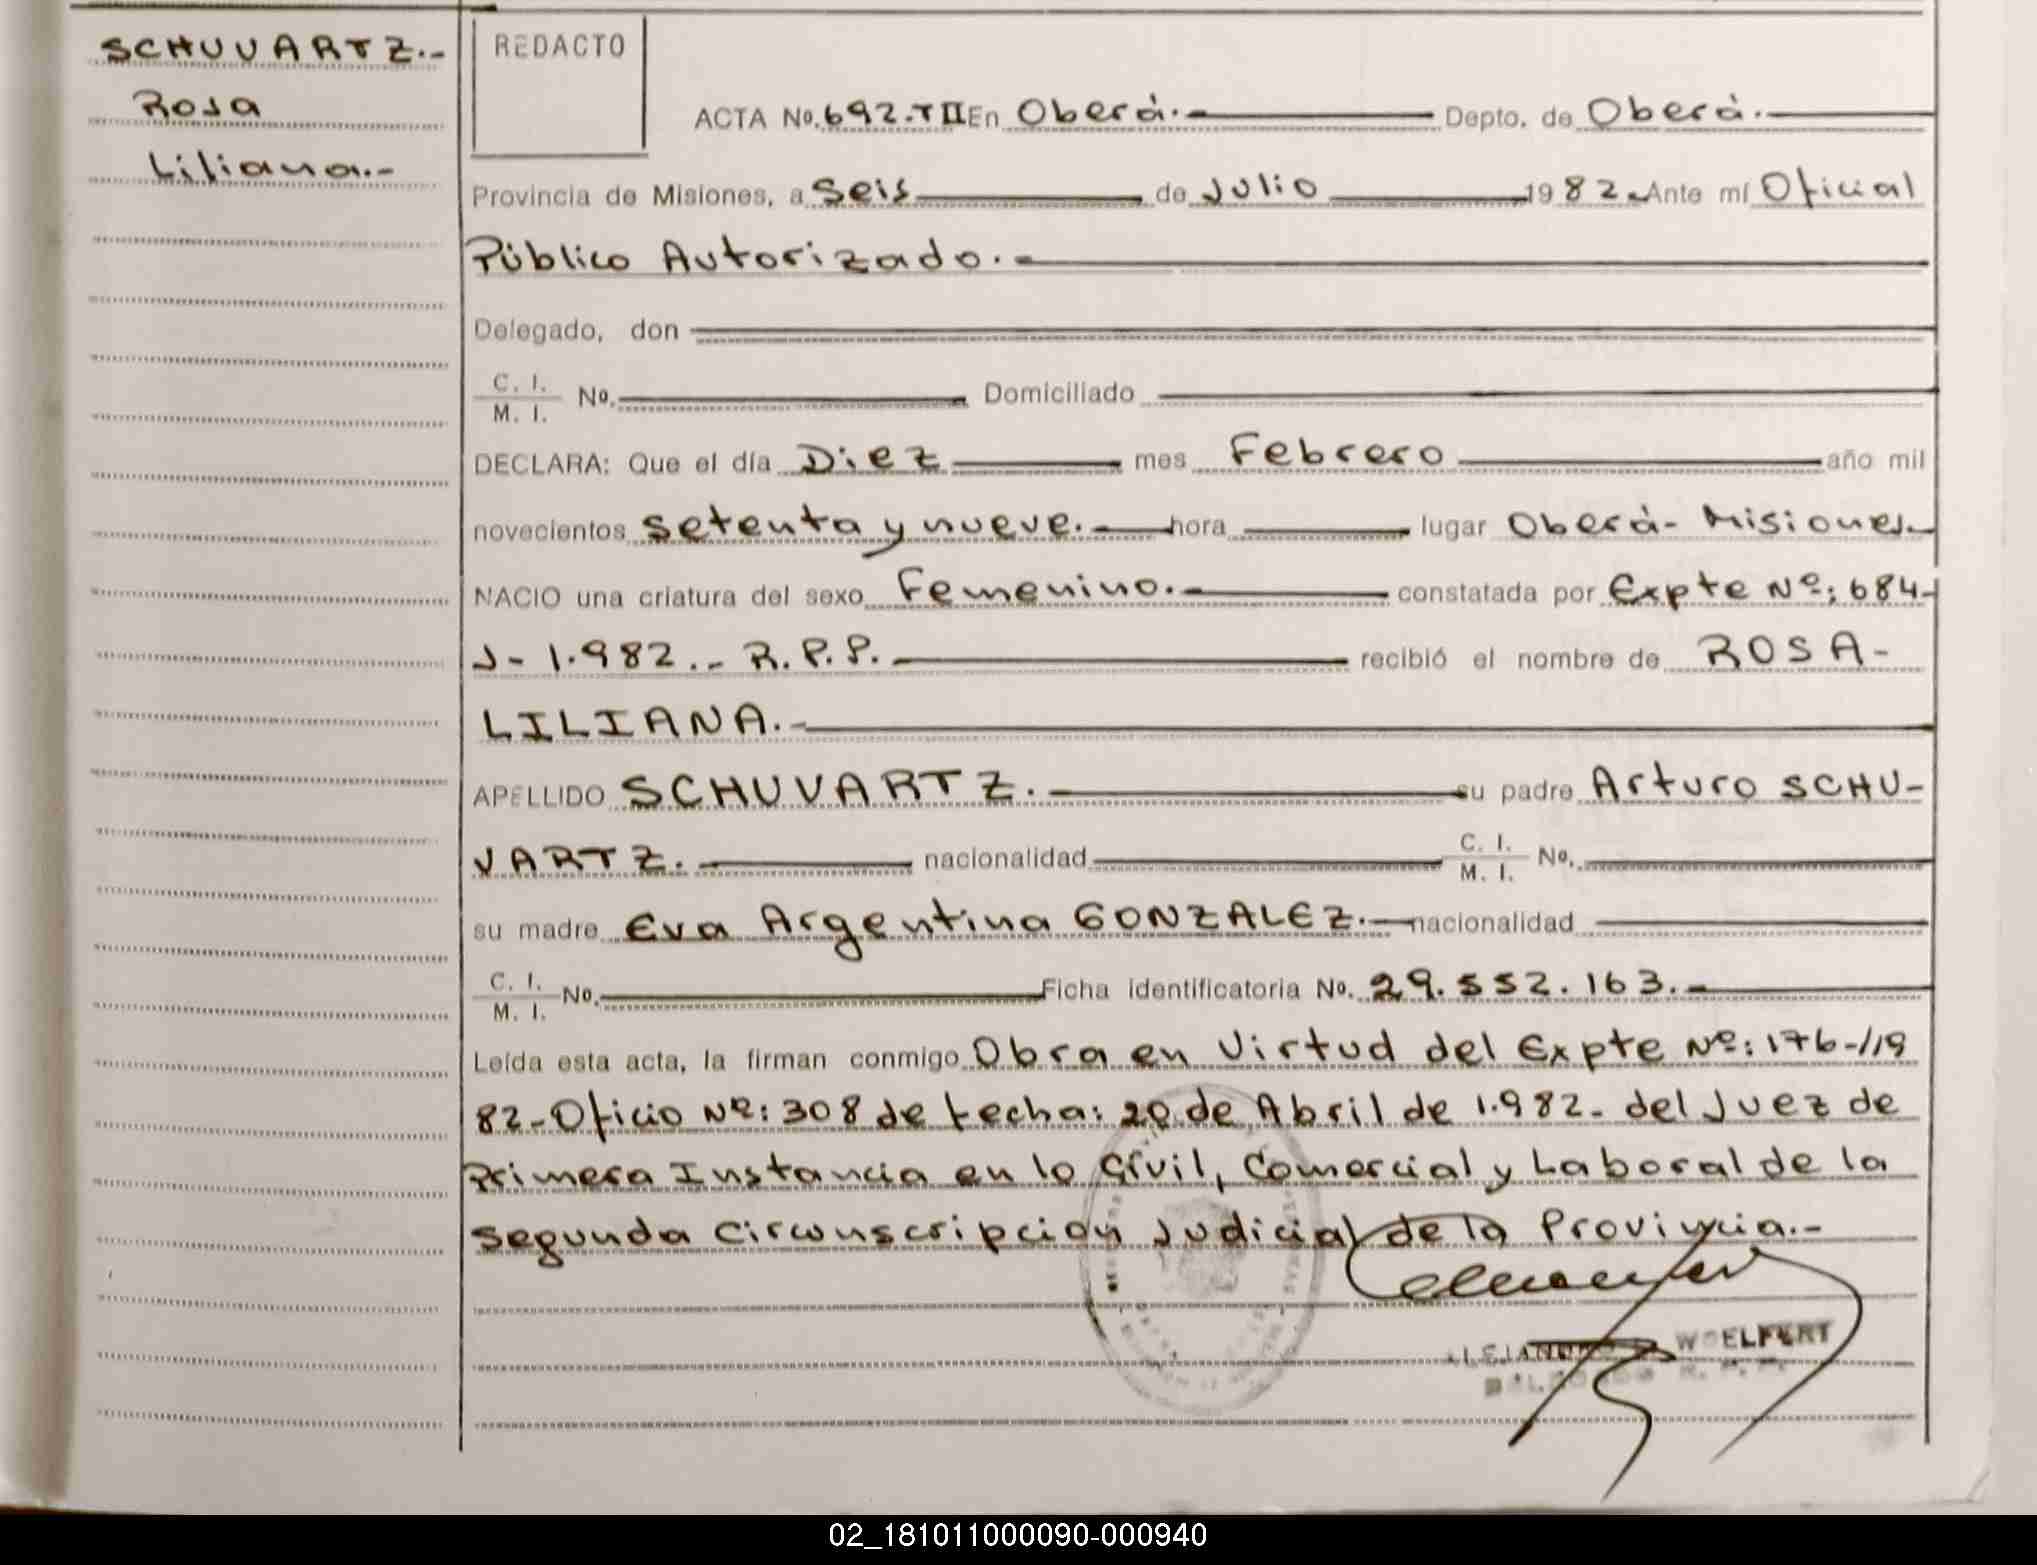 SCHUVARTZ.-
Rosa
Liliana.-
REDACTO
ACTA No. 692.TII En Oberá.- Depto. de Oberá.-
Provincia de Misiones, a Seis de Julio 1982.- Ante mí Oficial
Público Autorizado.-
Delegado, don
C. I.
M. I. No. Domiciliado
DECLARA: Que el día Diez mes Febrero año mil
novecientos setenta y nueve.- hora lugar Oberá- Misiones.-
NACIO una criatura del sexo Femenino.- constatada por Expte Nº: 684-
J- 1.982.- R.P.P. recibió el nombre de ROSA-
LILIANA.-
APELLIDO SCHUVARTZ.- su padre Arturo SCHU-
VARTZ.- nacionalidad C. I. M. I. No.
su madre Eva Argentina GONZALEZ.- nacionalidad
C. I.
M. I. No. Ficha identificatoria No. 29.552.163.-
Leída esta acta, la firman conmigo Obra en Virtud del Expte Nº: 176-/19
82-Oficio Nº: 308 de fecha: 20 de Abril de 1.982- del Juez de
Primera Instancia en lo Civil, Comercial y Laboral de la
Segunda Circunscripción Judicial de la Provincia.-
WOELFERT
02_181011000090-000940